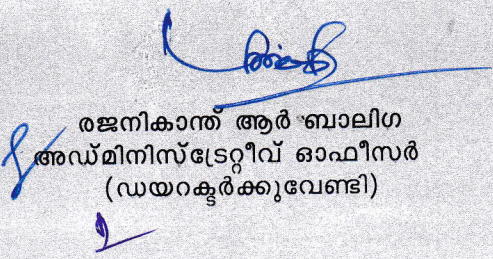 രജനികാന്ത് ആർ ബാലിഗ
അഡ്മിനിസ്ട്രേറ്റീവ് ഓഫീസർ
(ഡയറക്ടർക്കുവേണ്ടി)